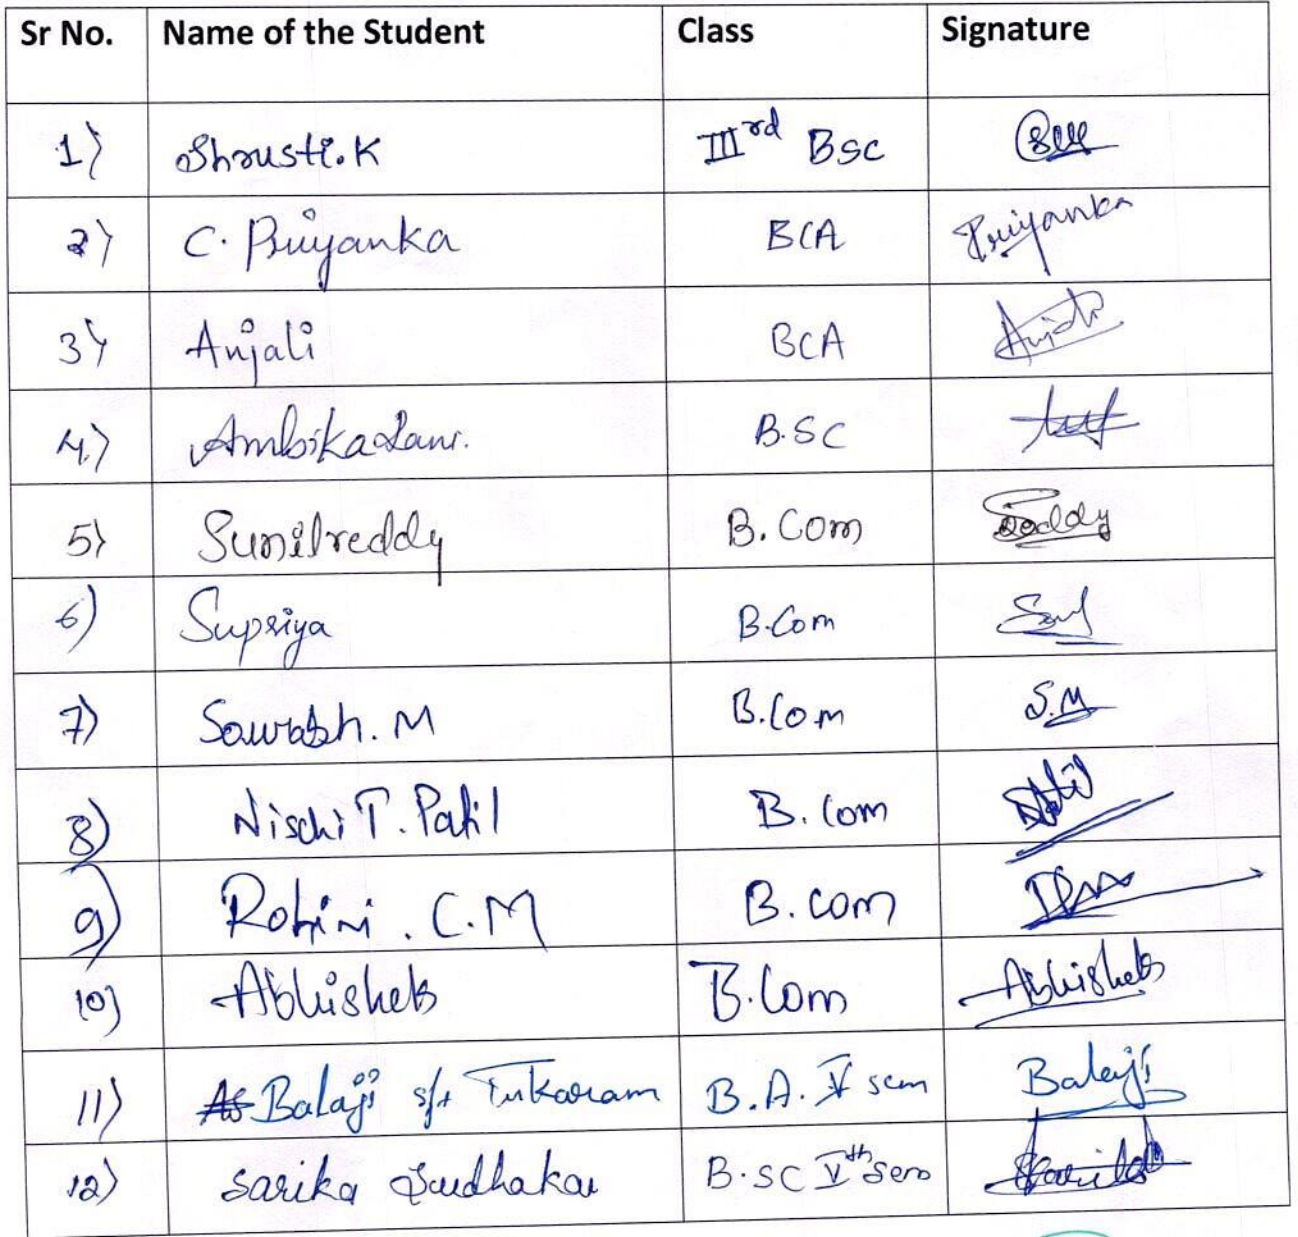 Sr No. Name of the Student Class Signature
1) Shrusti.K IIIrd Bsc
2) C. Priyanka BCA Priyanka
3) Anjali BCA Anjali
4) Ambika Rani. B.SC
5) Sunilreddy B.Com Reddy
6) Supriya B.Com
7) Sourabh.M B.Com S.M
8) Nischi T. Patil B.Com
9) Rohini.C.M B.com
10) Abhishek B.Com Abhishek
11) Balaji s/o Tukaram B.A. V sem Balaji
12) Sarika Sudhakar B.SC Vth Sem Sarika